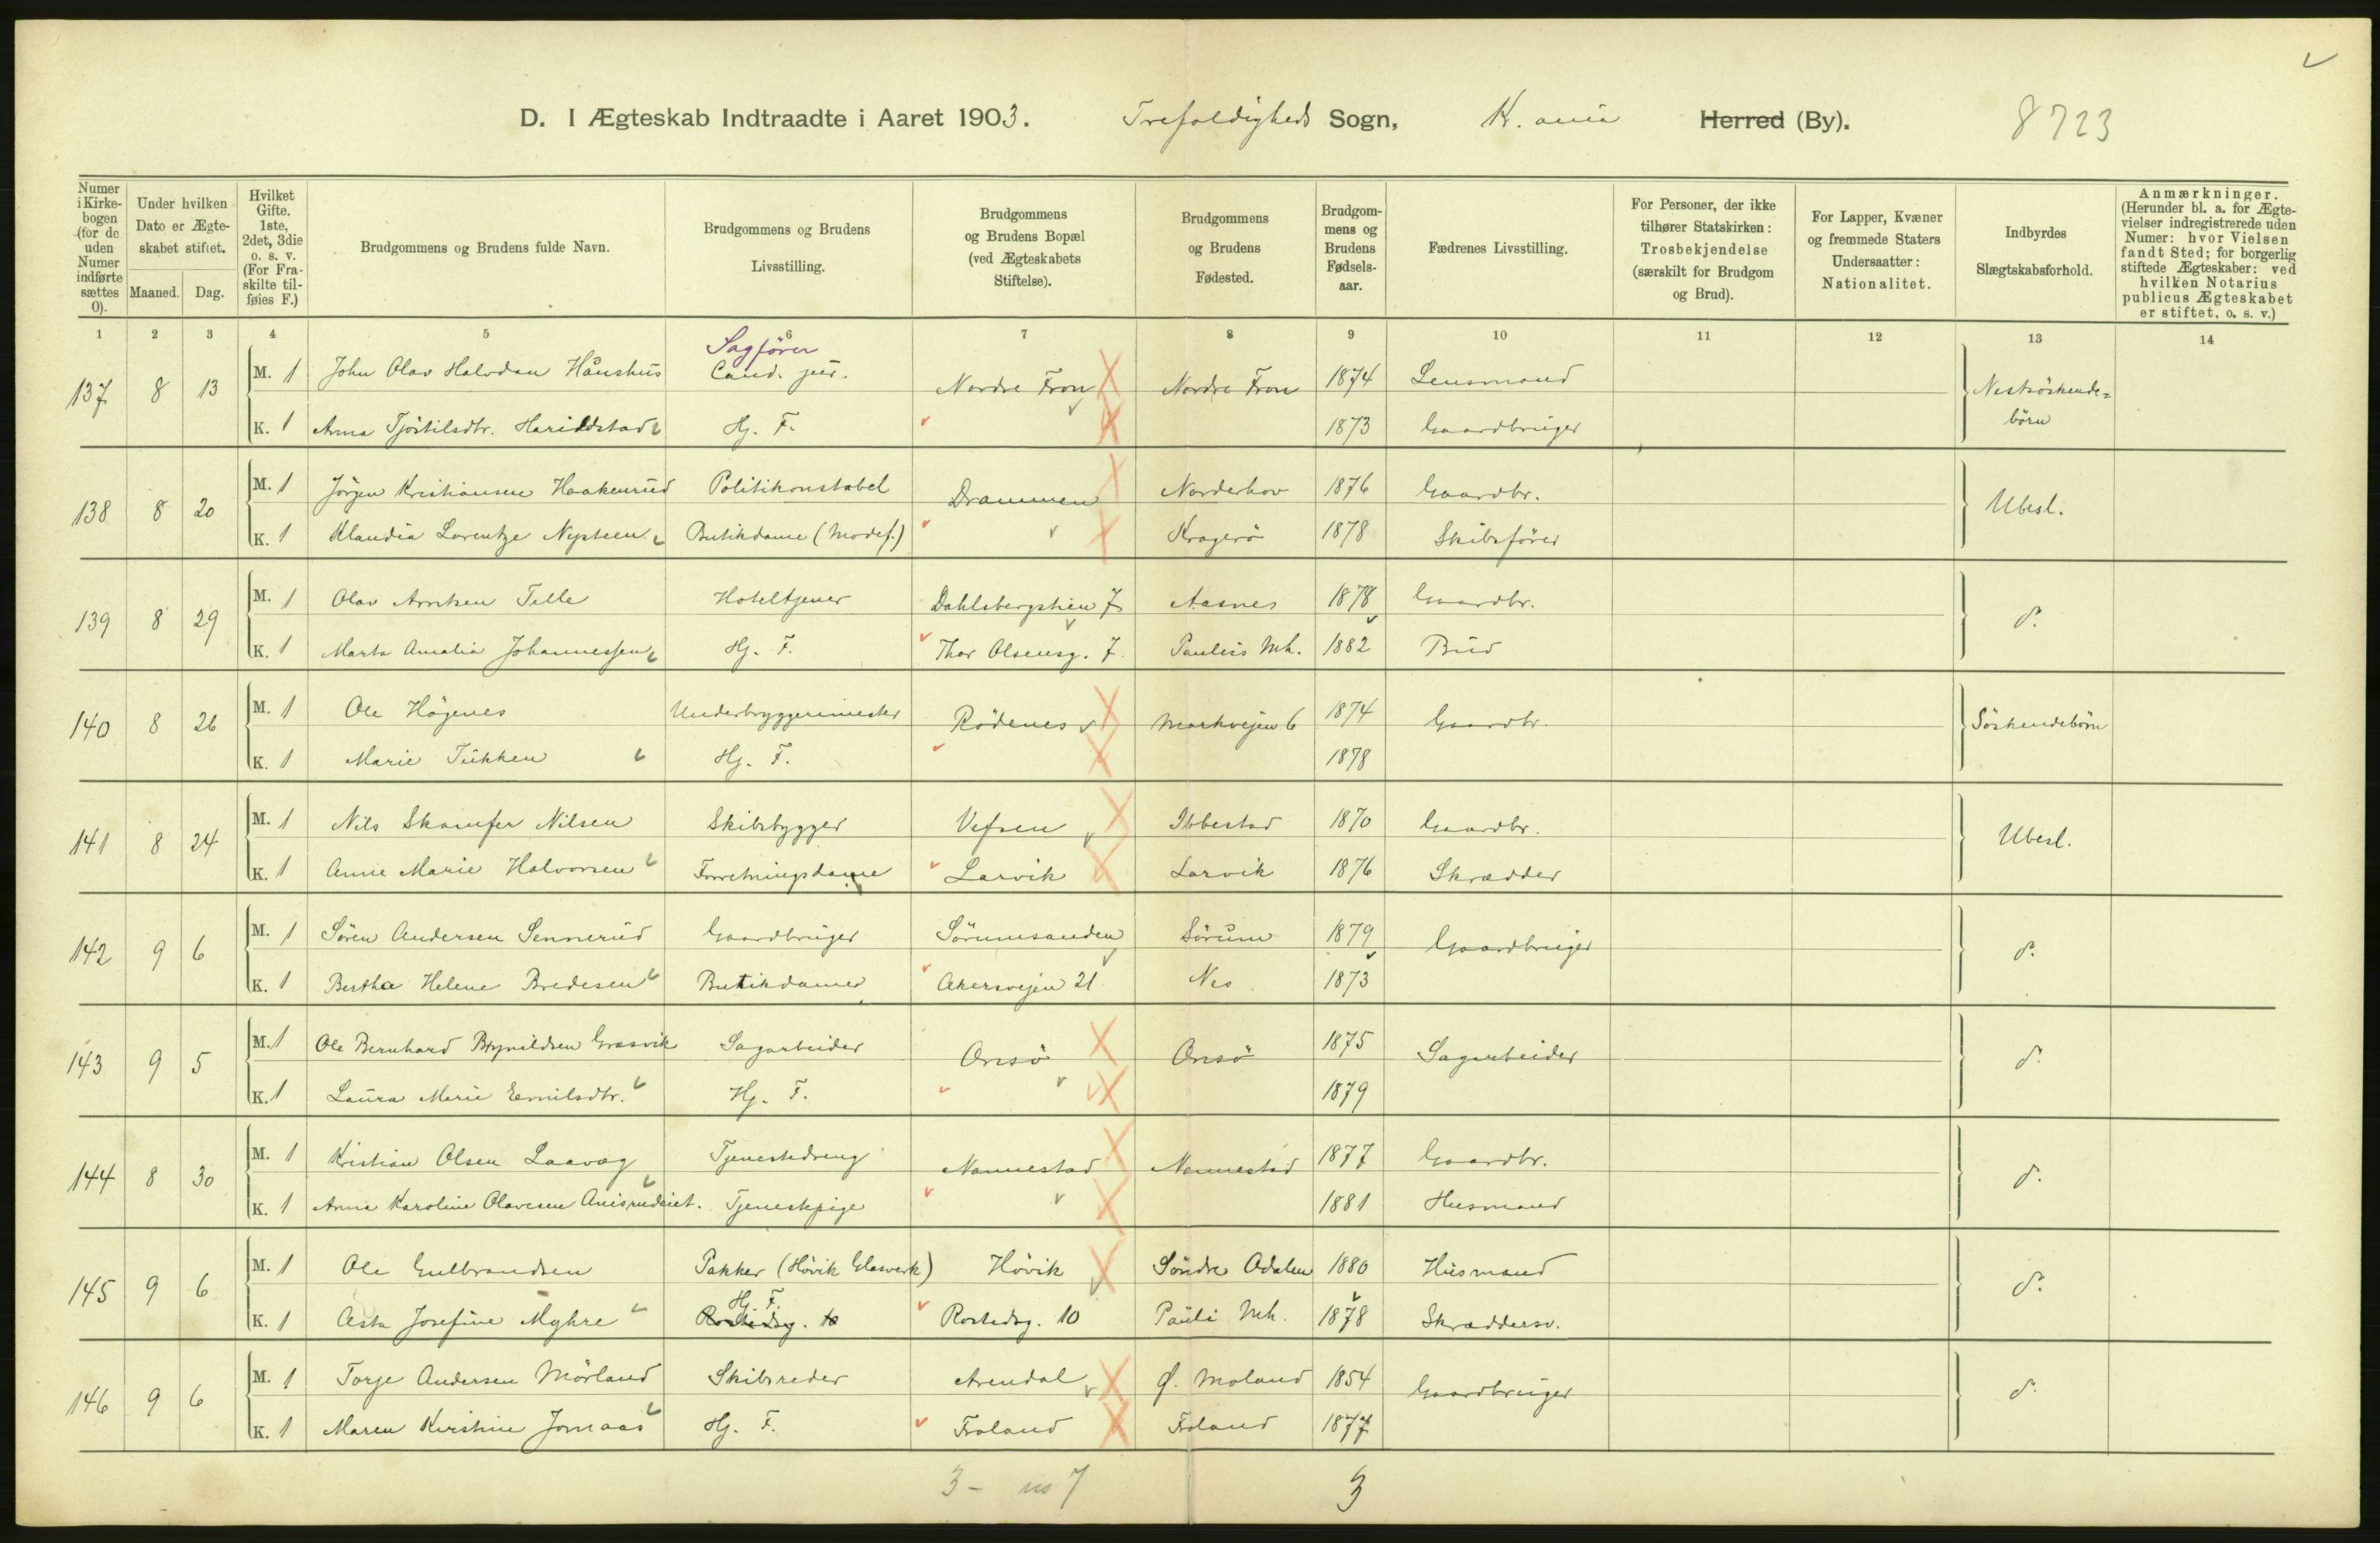 D. I Ægteskab Indtraadte i Aaret 1903. Trefoldigheds Sogn, K.ania Herred (By). 8723
Numer i Kirkebogen (for de uden Numer indførte sættes 0).
Under hvilken Dato er Ægteskabet stiftet.
Maaned. Dag.
Hvilket Gifte. 1ste, 2det, 3die o. s. v. (For Fraskilte tilføies F.)
Brudgommens og Brudens fulde Navn.
Brudgommens og Brudens Livsstilling.
Brudgommens og Brudens Bopæl (ved Ægteskabets Stiftelse).
Brudgommens og Brudens Fødested.
Brudgommens og Brudens Fødselsaar.
Fædrenes Livsstilling.
For Personer, der ikke tilhører Statskirken: Trosbekjendelse (særskilt for Brudgom og Brud).
For Lapper, Kvæner og fremmede Staters Undersaatter: Nationalitet.
Indbyrdes Slægtskabsforhold.
Anmærkninger. (Herunder bl. a. for Ægtevielser indregistrerede uden Numer: hvor Vielsen fandt Sted; for borgerlig stiftede Ægteskaber: ved hvilken Notarius publicus Ægteskabet er stiftet, o. s. v.)
1 2 3 4 5 6 7 8 9 10 11 12 13 14
Sagfører
137 8 13 M. 1 John Olav Halvdan Håushus Cand. jur. Nordre Fron Nordre Fron 1874 Lensmand Næstsöskende=
K. 1 Anna Tjöstilsdtr. Harildstad Hj. F. 1873 Gaardbruger börn
138 8 20 M. 1 Jörgen Kristiansen Haakenrud Politikonstabel Drammen Norderhov 1876 Gaardbr. Ubesl.
K. 1 Klaudia Lorentze Nepteen Butikdame (Modef.) Kragerö 1878 Skibsförer
139 8 29 M. 1 Olav Arntzen Telle Hoteltjener Dahlsbergstien 7 Aasnes 1878 Gaardbr. d°.
K. 1 Marta Amalia Johannessen Hj. F. Thor Olsensg. 7 Paulus Mh. 1882 Bud
140 8 26 M. 1 Ole Högenes Underbryggerimester Rödenes Markvejen 6 1874 Gaardbr. Söskendebörn
K. 1 Marie Tukken Hj. F. 1878
141 8 24 M. 1 Nils Skamfer Nilsen Skibsbygger Vefsen Ibbestad 1870 Gaardbr. Ubesl.
K. 1 Anne Marie Halvorsen Forretningsdame Larvik Larvik 1876 Skrædder
142 9 6 M. 1 Sören Andersen Sennerud Gaardbruger Sörumsanden Sörum 1879 Gaardbruger d°.
K. 1 Bertha Helene Bredesen Butikdame Akersvejen 21 Nes 1873
143 9 5 M. 1 Ole Bernhard Brynildsen Græsvik Sagarbeider Onsö Onsö 1875 Sagarbeider d°.
K. 1 Laura Marie Emilsdtr. Hj. F. 1879
144 8 30 M. 1 Kristian Olsen Laavag Tjenestedreng Nannestad Nannestad 1877 Gaardbr. d°.
K. 1 Anna Karoline Olavesen Tjenestepige 1881 Husmand
145 9 6 M. 1 Ole Gulbrandsen Pakker (Hövik Glasverk) Hövik Söndre Odalen 1880 Husmand d°.
Hj. F.
K. 1 Asta Josefine Myhre Rostedsg. 10 Rostedsg. 10 Pauli Mh. 1878 Skræddersv.
146 9 6 M. 1 Torje Andersen Mörland Skibsreder Arendal Ø. Moland 1854 Gaardbruger d°.
K. 1 Maren Kirstine Jomaas Hj. F. Froland Froland 1877
3 - 7 3